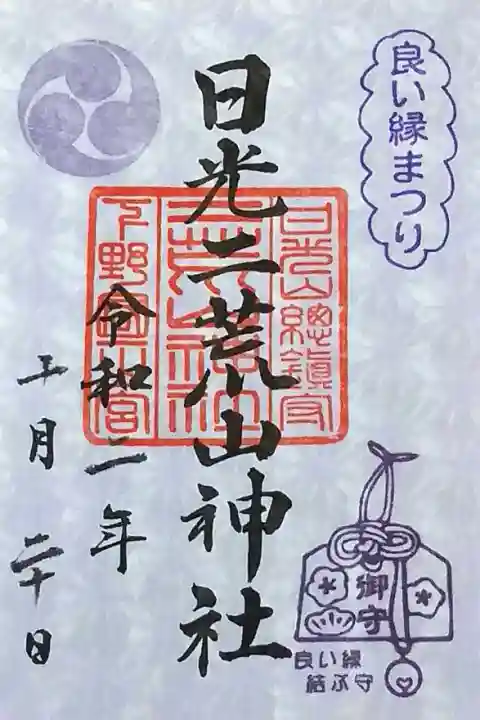 良い縁まつり
御守
良い縁
結ぶ守
日光二荒山神社
日光山總鎮守
二荒山神社
下野國一宮
令和二年
月二十日